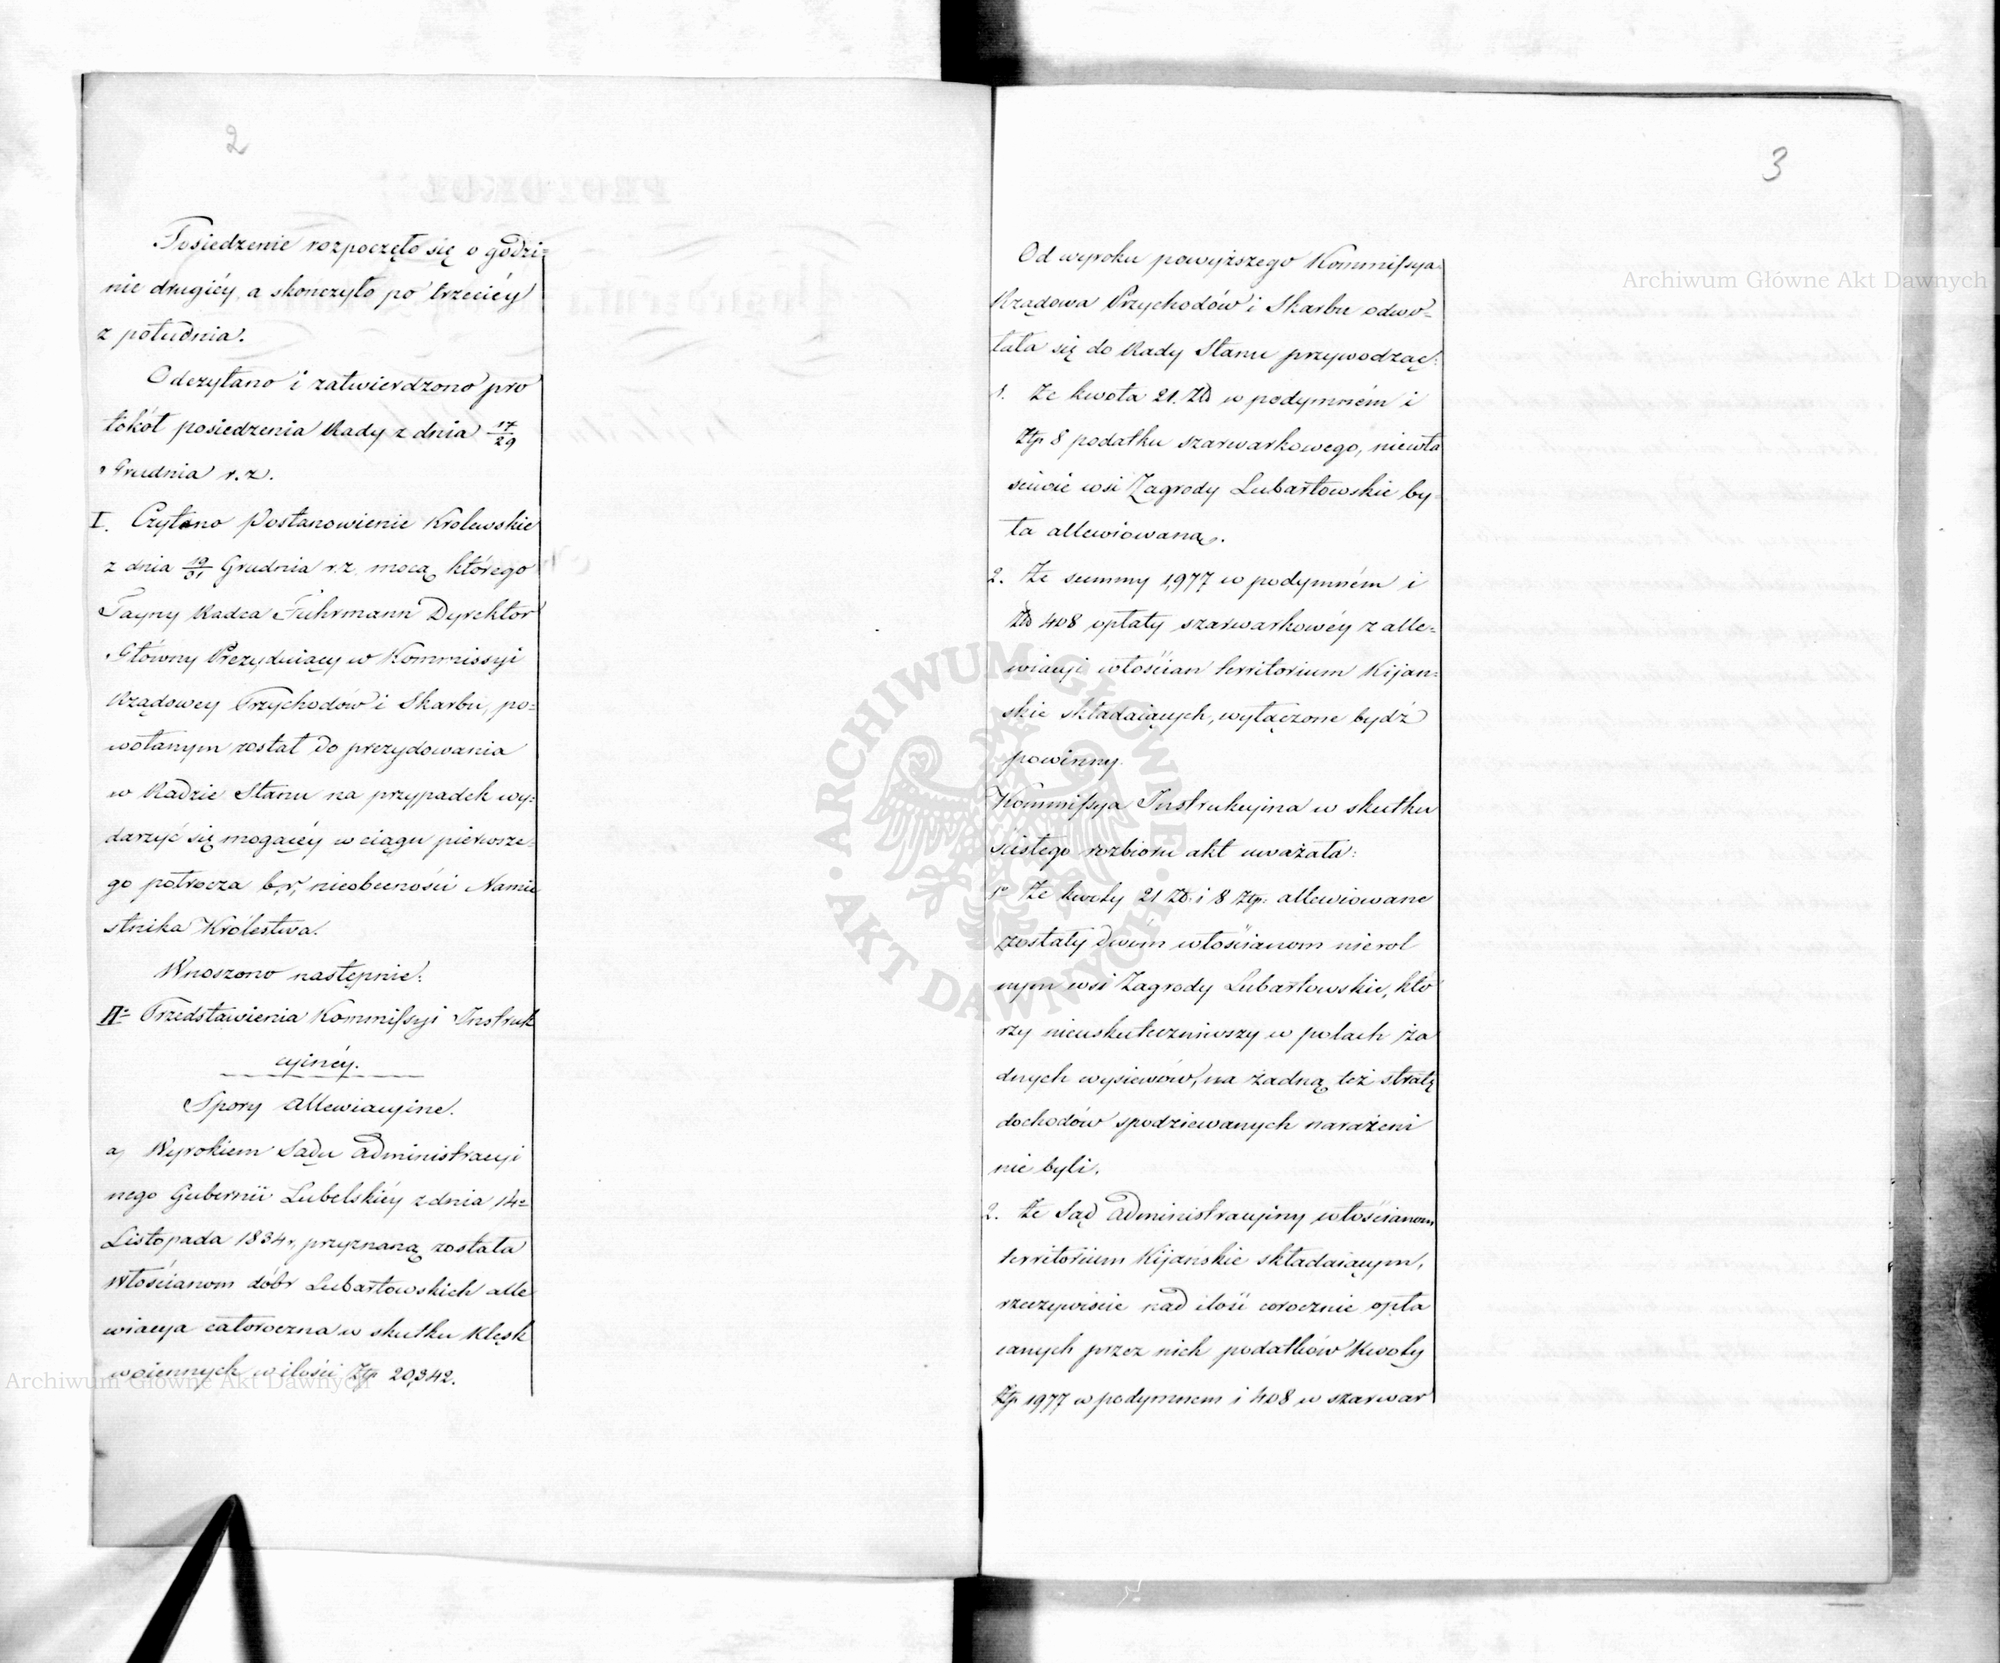 2
Posiedzenie rozpoczęło się o godzi=
nie drugiéy, a skończyło po trzeciéy
z południa.
Odczytano i zatwierdzono pro
tokół posiedzenia Rady z dnia 17/29
Grudnia r. z.
I. Czytano Postanowienie Krolewskie
z dnia 19/31 Grudnia r. z. mocą którego
Tayny Radca Fuhrmann Dyrektor
Główny Prezyduiący w Kommissyi
Rządowey Przychodów i Skarbu, po=
wołanym został do prezydowania
w Radzie Stanu na przypadek wy=
darzyć się mogącéy w ciągu pierwsze=
go potrocza b. r. nieobecności Namie
stnika Królestwa.
Wnoszono następnie.
II= Przedstawienia Kommissyi Instruk
cyinéy.
Spory allewiacyine.
a, Wyrokiem Sądu administracyi
nego Gubernii Lubelskiéy z dnia 14=
Listopada 1834 r, przyznaną została
Włościanom dóbr Lubartowskich alle
wiacya całoroczna w skutku klęsk
woiennych w ilości Złp 20,342.
3
Od wyroku powyższego Kommissya
Rządowa Przychodów i Skarbu odwo=
łała się do Rady Stanu przywodząc:
1. Że kwota 21. Zł w podymném i
Złp 8 podatku szarwarkowego, niewła
ściwie wsi Zagrody Lubartowskie by=
ła allewiowaną.
2. Że summy 1,977 w podymném i
Zł 408 opłaty szarwarkowéy z alle=
wiacyi włościan territorium Kijan=
skie składaiących, wyłączone bydź
powinny.
Kommissya Instrukcyina w skutku
ścisłego rozbioru akt uważała:
1o Że kwoty 21 Zł. i 8 Złp. allewiowane
zostały dwóm włościanom nierol
nym wsi Zagrody Lubartowskie, któ
rzy nieuskuteczniwszy w polach ża
dnych wysiewów, na żadną też stratę
dochodów spodziewanych narażeni
nie byli.
2. Że Sąd administracyiny włościanom
territorium Kijańskie składaiącym,
rzeczywiście nad ilość corocznie opła
canych przez nich podatków kwoty
Złp 1977 w podymnem i 408 w szarwar
Archiwum Główne Akt Dawnych
Archiwum Główne Akt Dawnych
ARCHIWUM GŁÓWNE AKT DAWNYCH